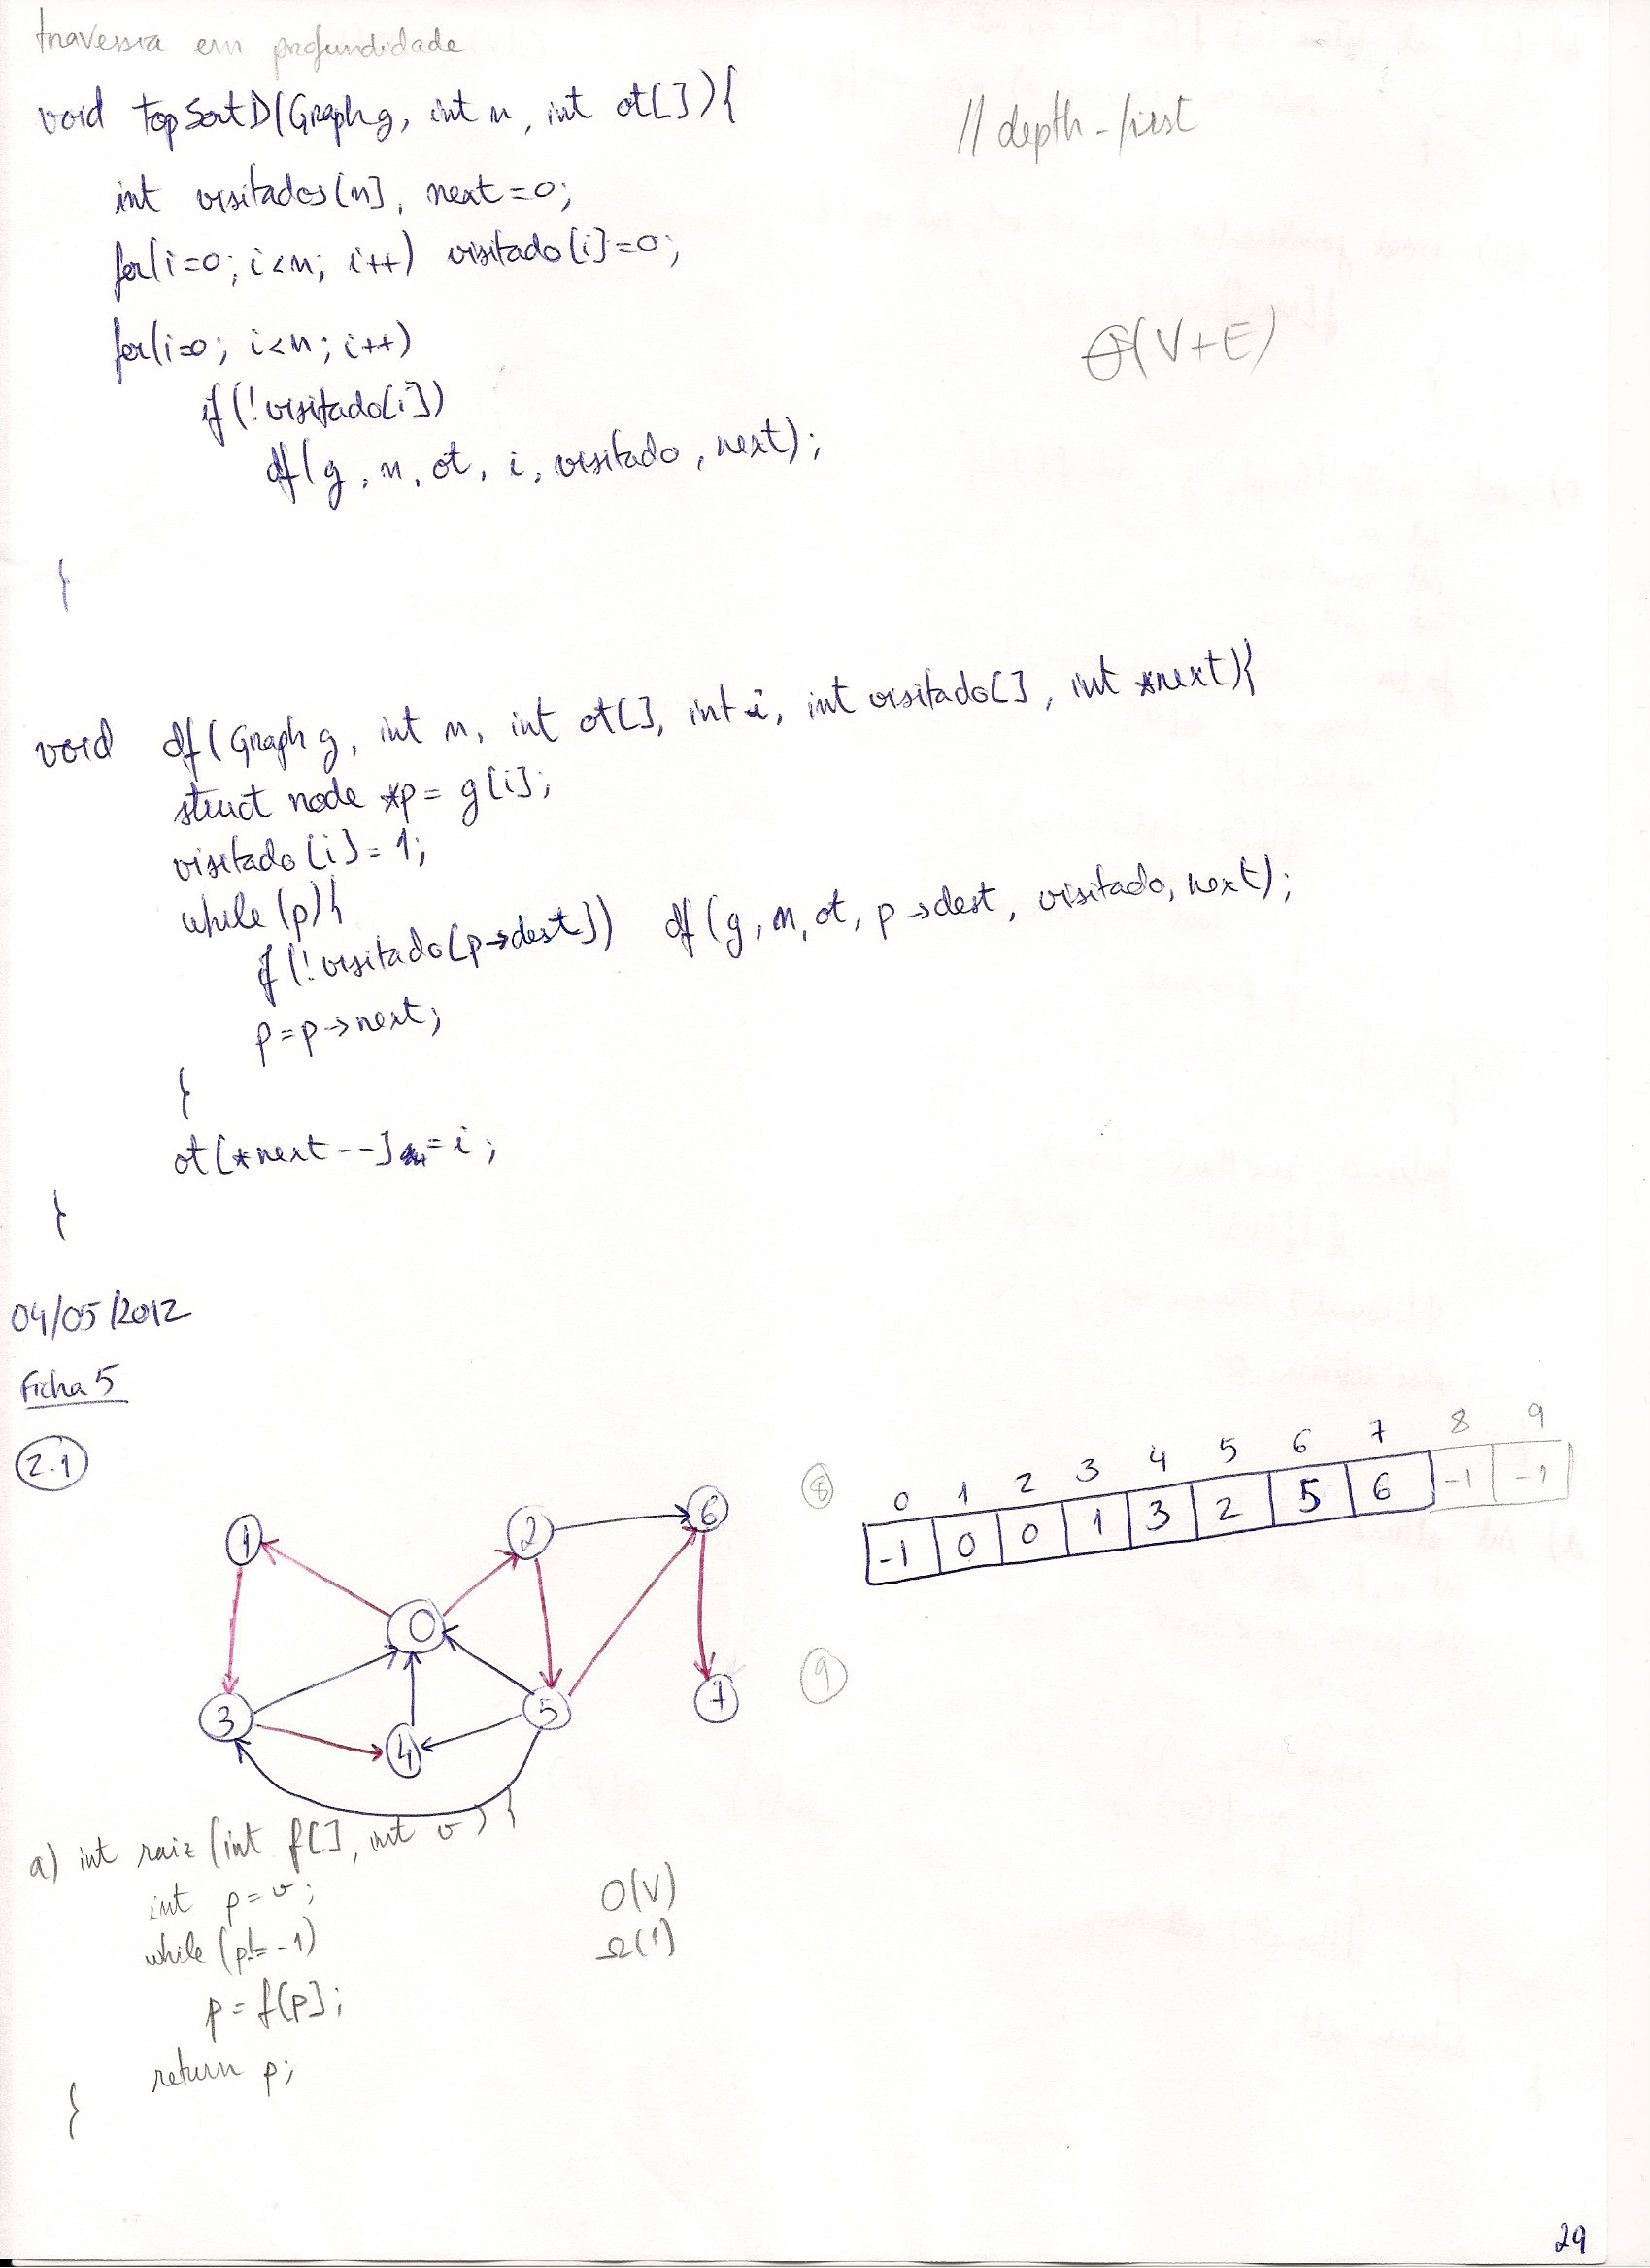 travessia em profundidade
void topSortD(Graph g, int n, int ot[]){
// depth-first
int visitados[n], next=0;
for(i=0; i<n; i++) visitado[i]=0;
for(i=0; i<n; i++)
Θ(V+E)
if(!visitado[i])
df(g, n, ot, i, visitado, next);
}
void df(Graph g, int n, int ot[], int i, int visitado[], int *next){
struct node *p = g[i];
visitado[i]=1;
while(p){
if(!visitado[p->dest]) df(g, n, ot, p->dest, visitado, next);
p=p->next;
}
ot[*next--]=i;
}
04/05/2012
Ficha 5
2.1
1
2
6
0
3
4
5
7
8
0 1 2 3 4 5 6 7 8 9
-1 0 0 1 3 2 5 6 -1 -1
9
a) int raiz(int f[], int v){
int p=v;
O(V)
while(p!=-1)
Ω(1)
p=f[p];
return p;
}
29